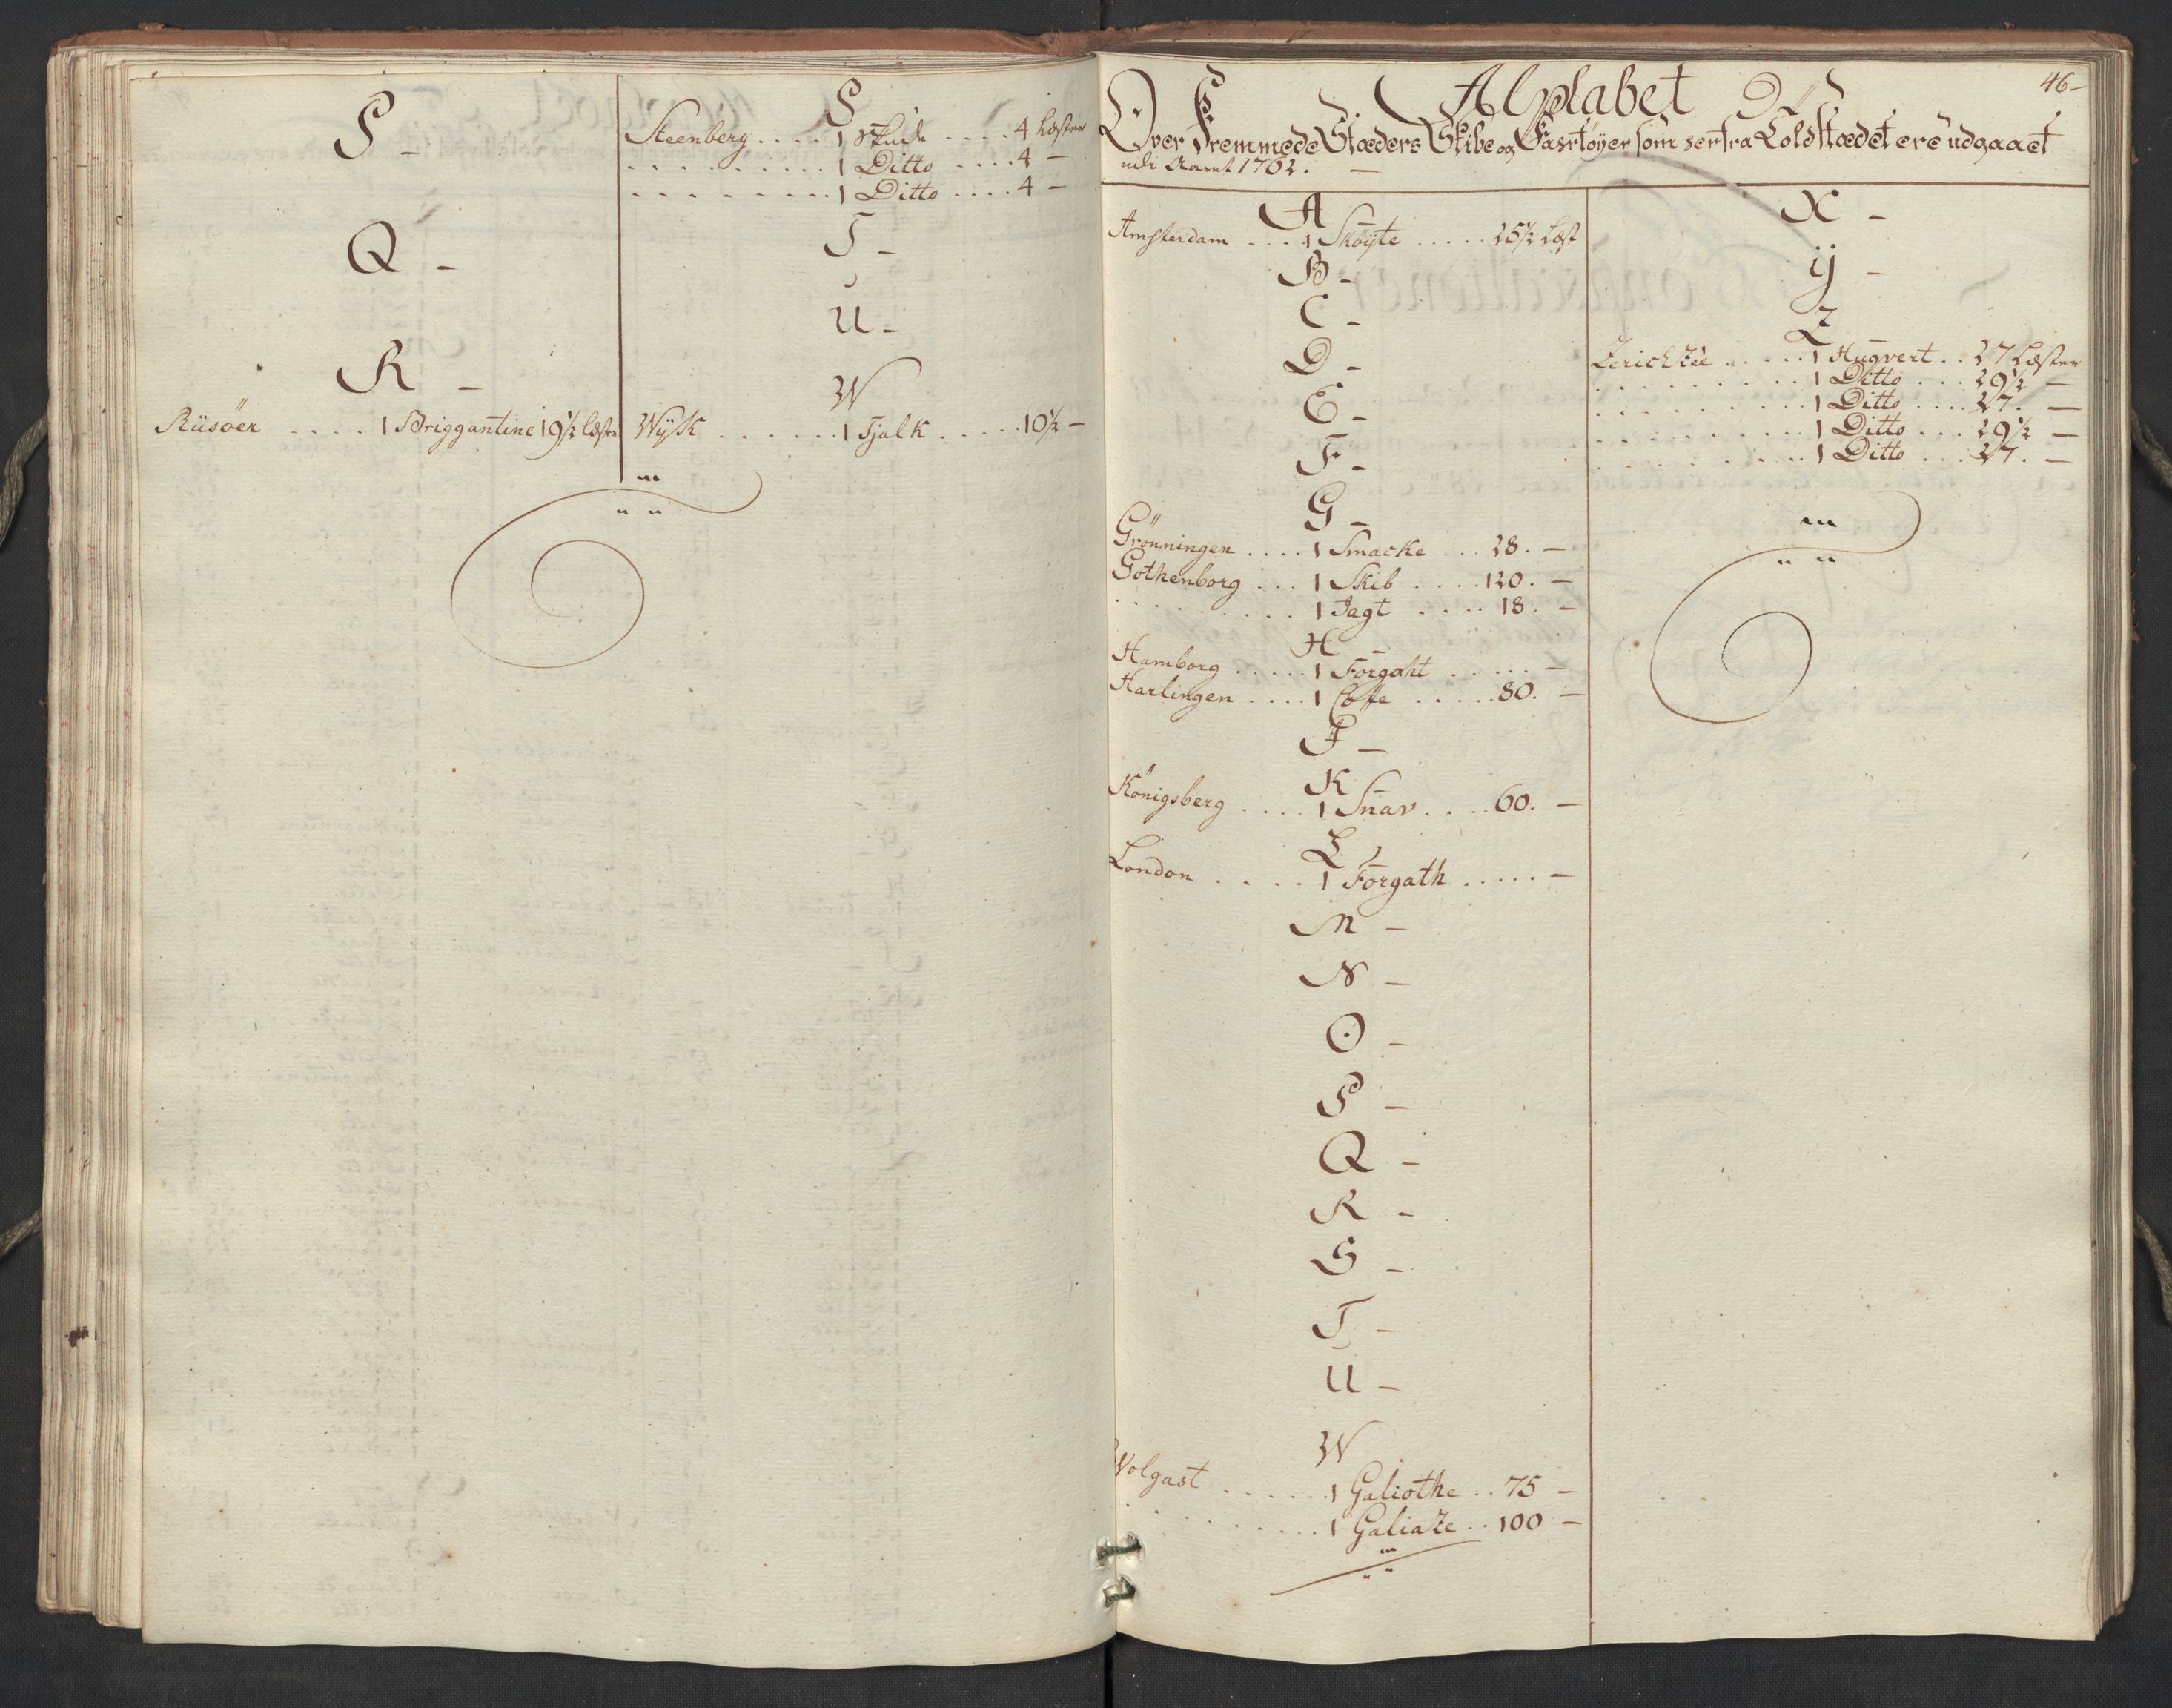 P -
Q -
R -
Riisöer . . . . 1 Briggantine 19½ Læster
S
Steenberg . . . . 1 Skude . . . . 4 Læster
. . . . . . . . . 1 Ditto . . . . 4 -
. . . . . . . . . 1 Ditto . . . . 4 -
T -
U -
W
Wÿk . . . . . . 1 Tjalk . . . . . 10½ -
46-
Alphabet
Over Fremmede Stæders Skibe og Fartöyer som her fra Toldstædet ere udgaaet
udi Aaret 1762. -
A
Amsterdam . . . . 1 Sköyte . . . . . 25½ Læst
B -
C -
D -
E -
F -
G -
Grönningen . . . . 1 Smacke . . . 28. -
Gothenborg . . . 1 Skib . . . . 120. -
. . . . . . . . . 1 Jagt . . . . 18. -
H -
Hamborg . . . . . 1 Forgaht . . . . . -
Harlingen . . . . 1 Coffe . . . . . 80. -
J -
K -
Königsberg . . . . 1 Snav . . . . 60. -
L
London . . . . 1 Forgath . . . . . -
M -
N -
O -
P -
Q -
R -
S -
T -
U -
W
Wolgast . . . . . . 1 Galiothe . . 75 -
. . . . . . . . . 1 Galiaze . . 100 -
X -
ÿ -
Z
Zerichzée . . . . . 1 Hugvert . . 27 Læster
. . . . . . . . . 1 Ditto . . . 29½ -
. . . . . . . . . 1 Ditto . . . . 27. -
. . . . . . . . . 1 Ditto . . . 29½ -
. . . . . . . . . 1 Ditto . . . 27. -